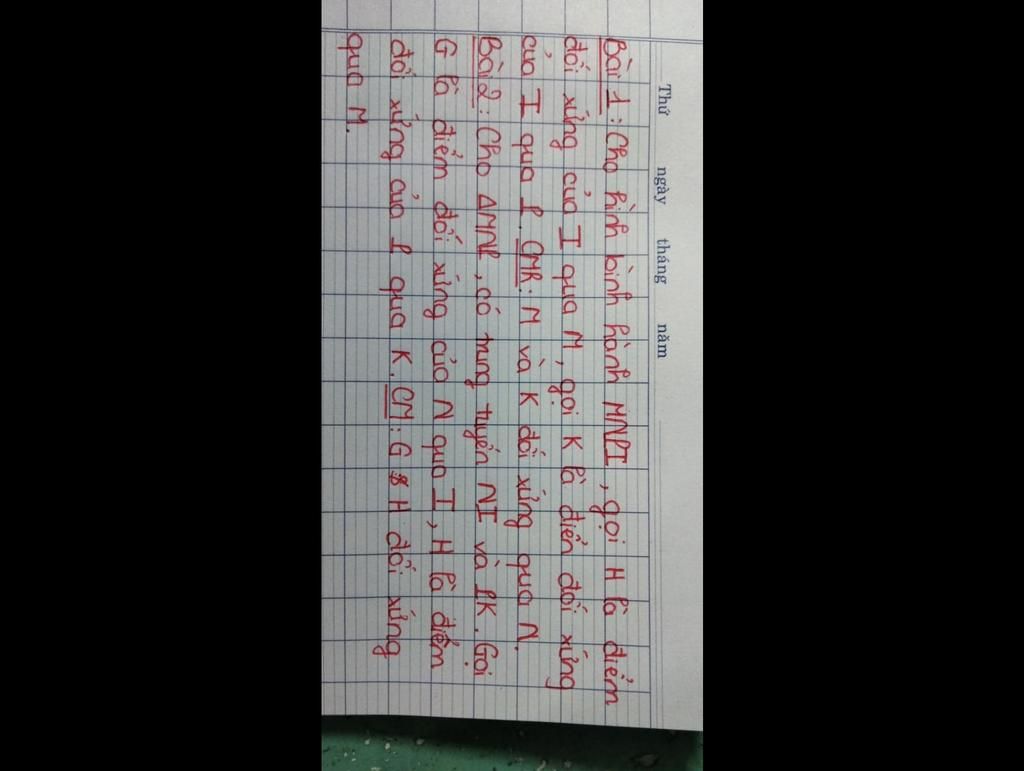 Thứ ngày tháng năm
Bài 1: Cho hình bình hành MNPI, gọi H là điểm
đối xứng của I qua M, gọi K là điển đối xứng
của I qua P. CMR: M và K đối xứng qua N.
Bài 2: Cho ΔMNP, có trung tuyến NI và PK. Gọi
G là điểm đối xứng của N qua I, H là điểm
đối xứng của P qua K. CM: G & H đối xứng
qua M.